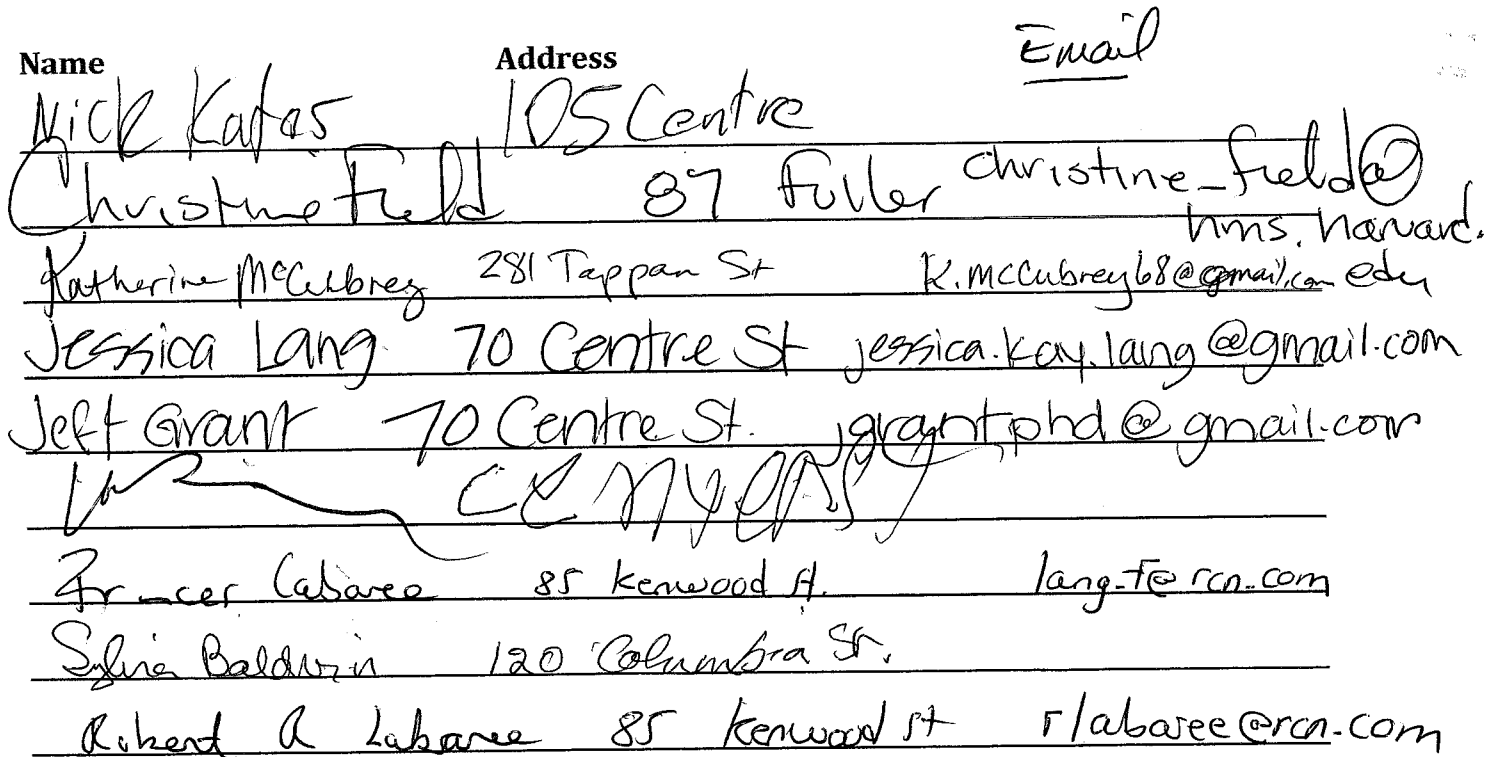 Name Address Email
Nick Kates 105 Centre
Christine Field 87 Fuller christine_field@
hms.harvard.
Katherine McCubrey 281 Tappan St K.mccubrey68@gmail.com edu
Jessica Lang 70 Centre St jessica.kay.lang@gmail.com
Jeff Grant 70 Centre St. jgrantphd@gmail.com
Labaree 85 Kenwood St. lang-f@rcn.com
Sylvia Baldwin 120 Columbia St.
Robert A Labaree 85 Kenwood st rlabaree@rcn.com